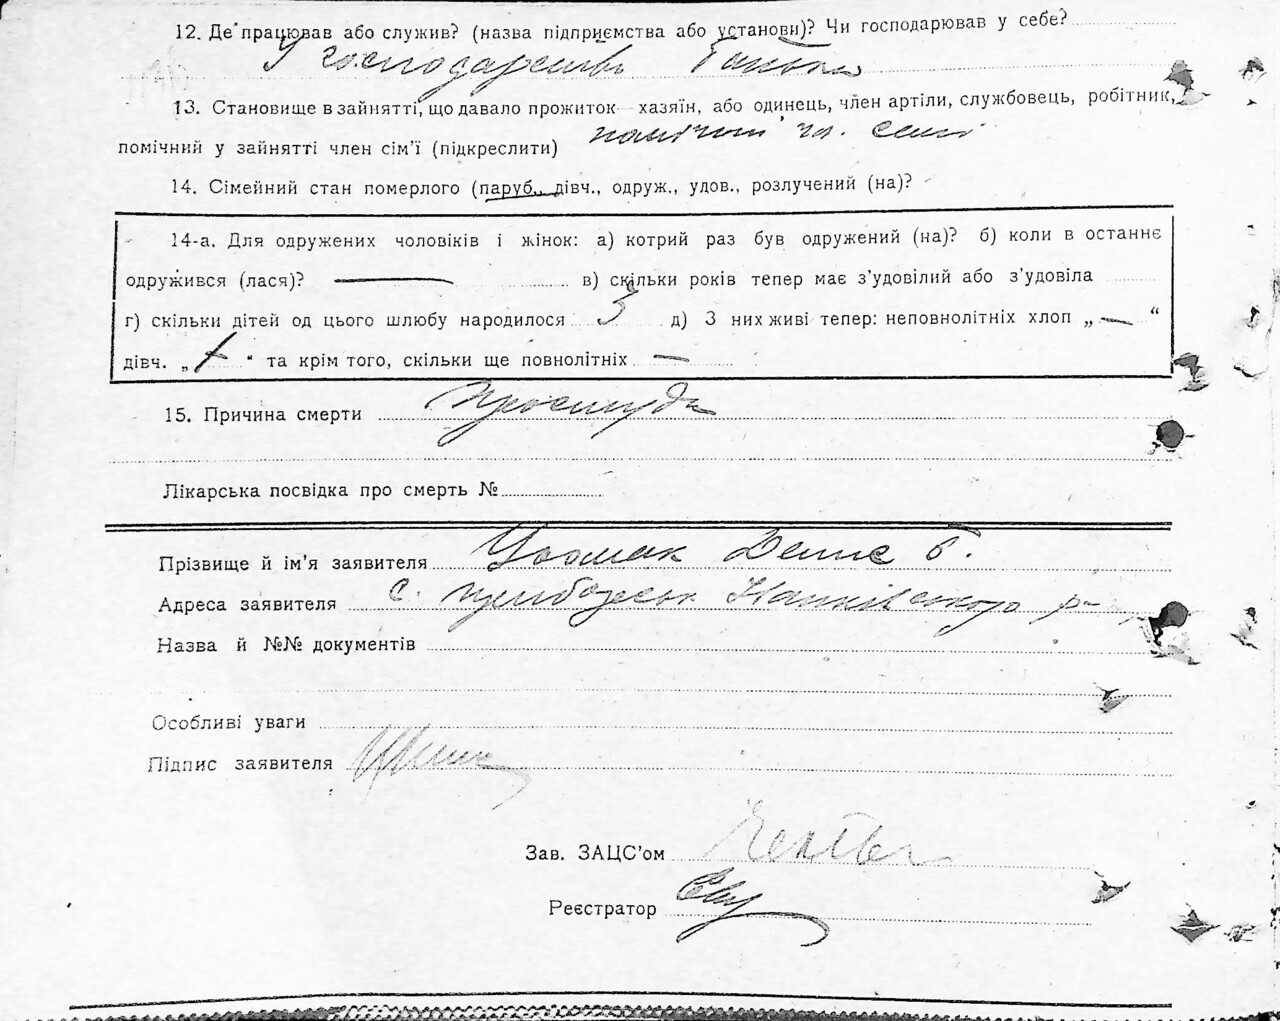 12. Де працював або служив? (назва підприємства або установи)? Чи господарював у себе?
У господарстві батька
13. Становище в зайнятті, що давало прожиток — хазяїн, або одинець, член артіли, службовець, робітник,
помічний у зайнятті член сім'ї (підкреслити) чл. семї
14. Сімейний стан померлого (паруб., дівч., одруж., удов., розлучений (на)?
14-а. Для одружених чоловіків і жінок: а) котрий раз був одружений (на)? б) коли в останнє
одружився (лася)? — в) скільки років тепер має з'удовілий або з'удовіла
г) скільки дітей од цього шлюбу народилося 3 д) З них живі тепер: неповнолітніх хлоп „—“
дівч. „ “ та крім того, скільки ще повнолітніх —
15. Причина смерти простуда
Лікарська посвідка про смерть №
Прізвище й ім'я заявителя Денис Б.
Адреса заявителя с.
Назва й №№ документів
Особливі уваги
Підпис заявителя
Зав. ЗАЦС'ом
Реєстратор